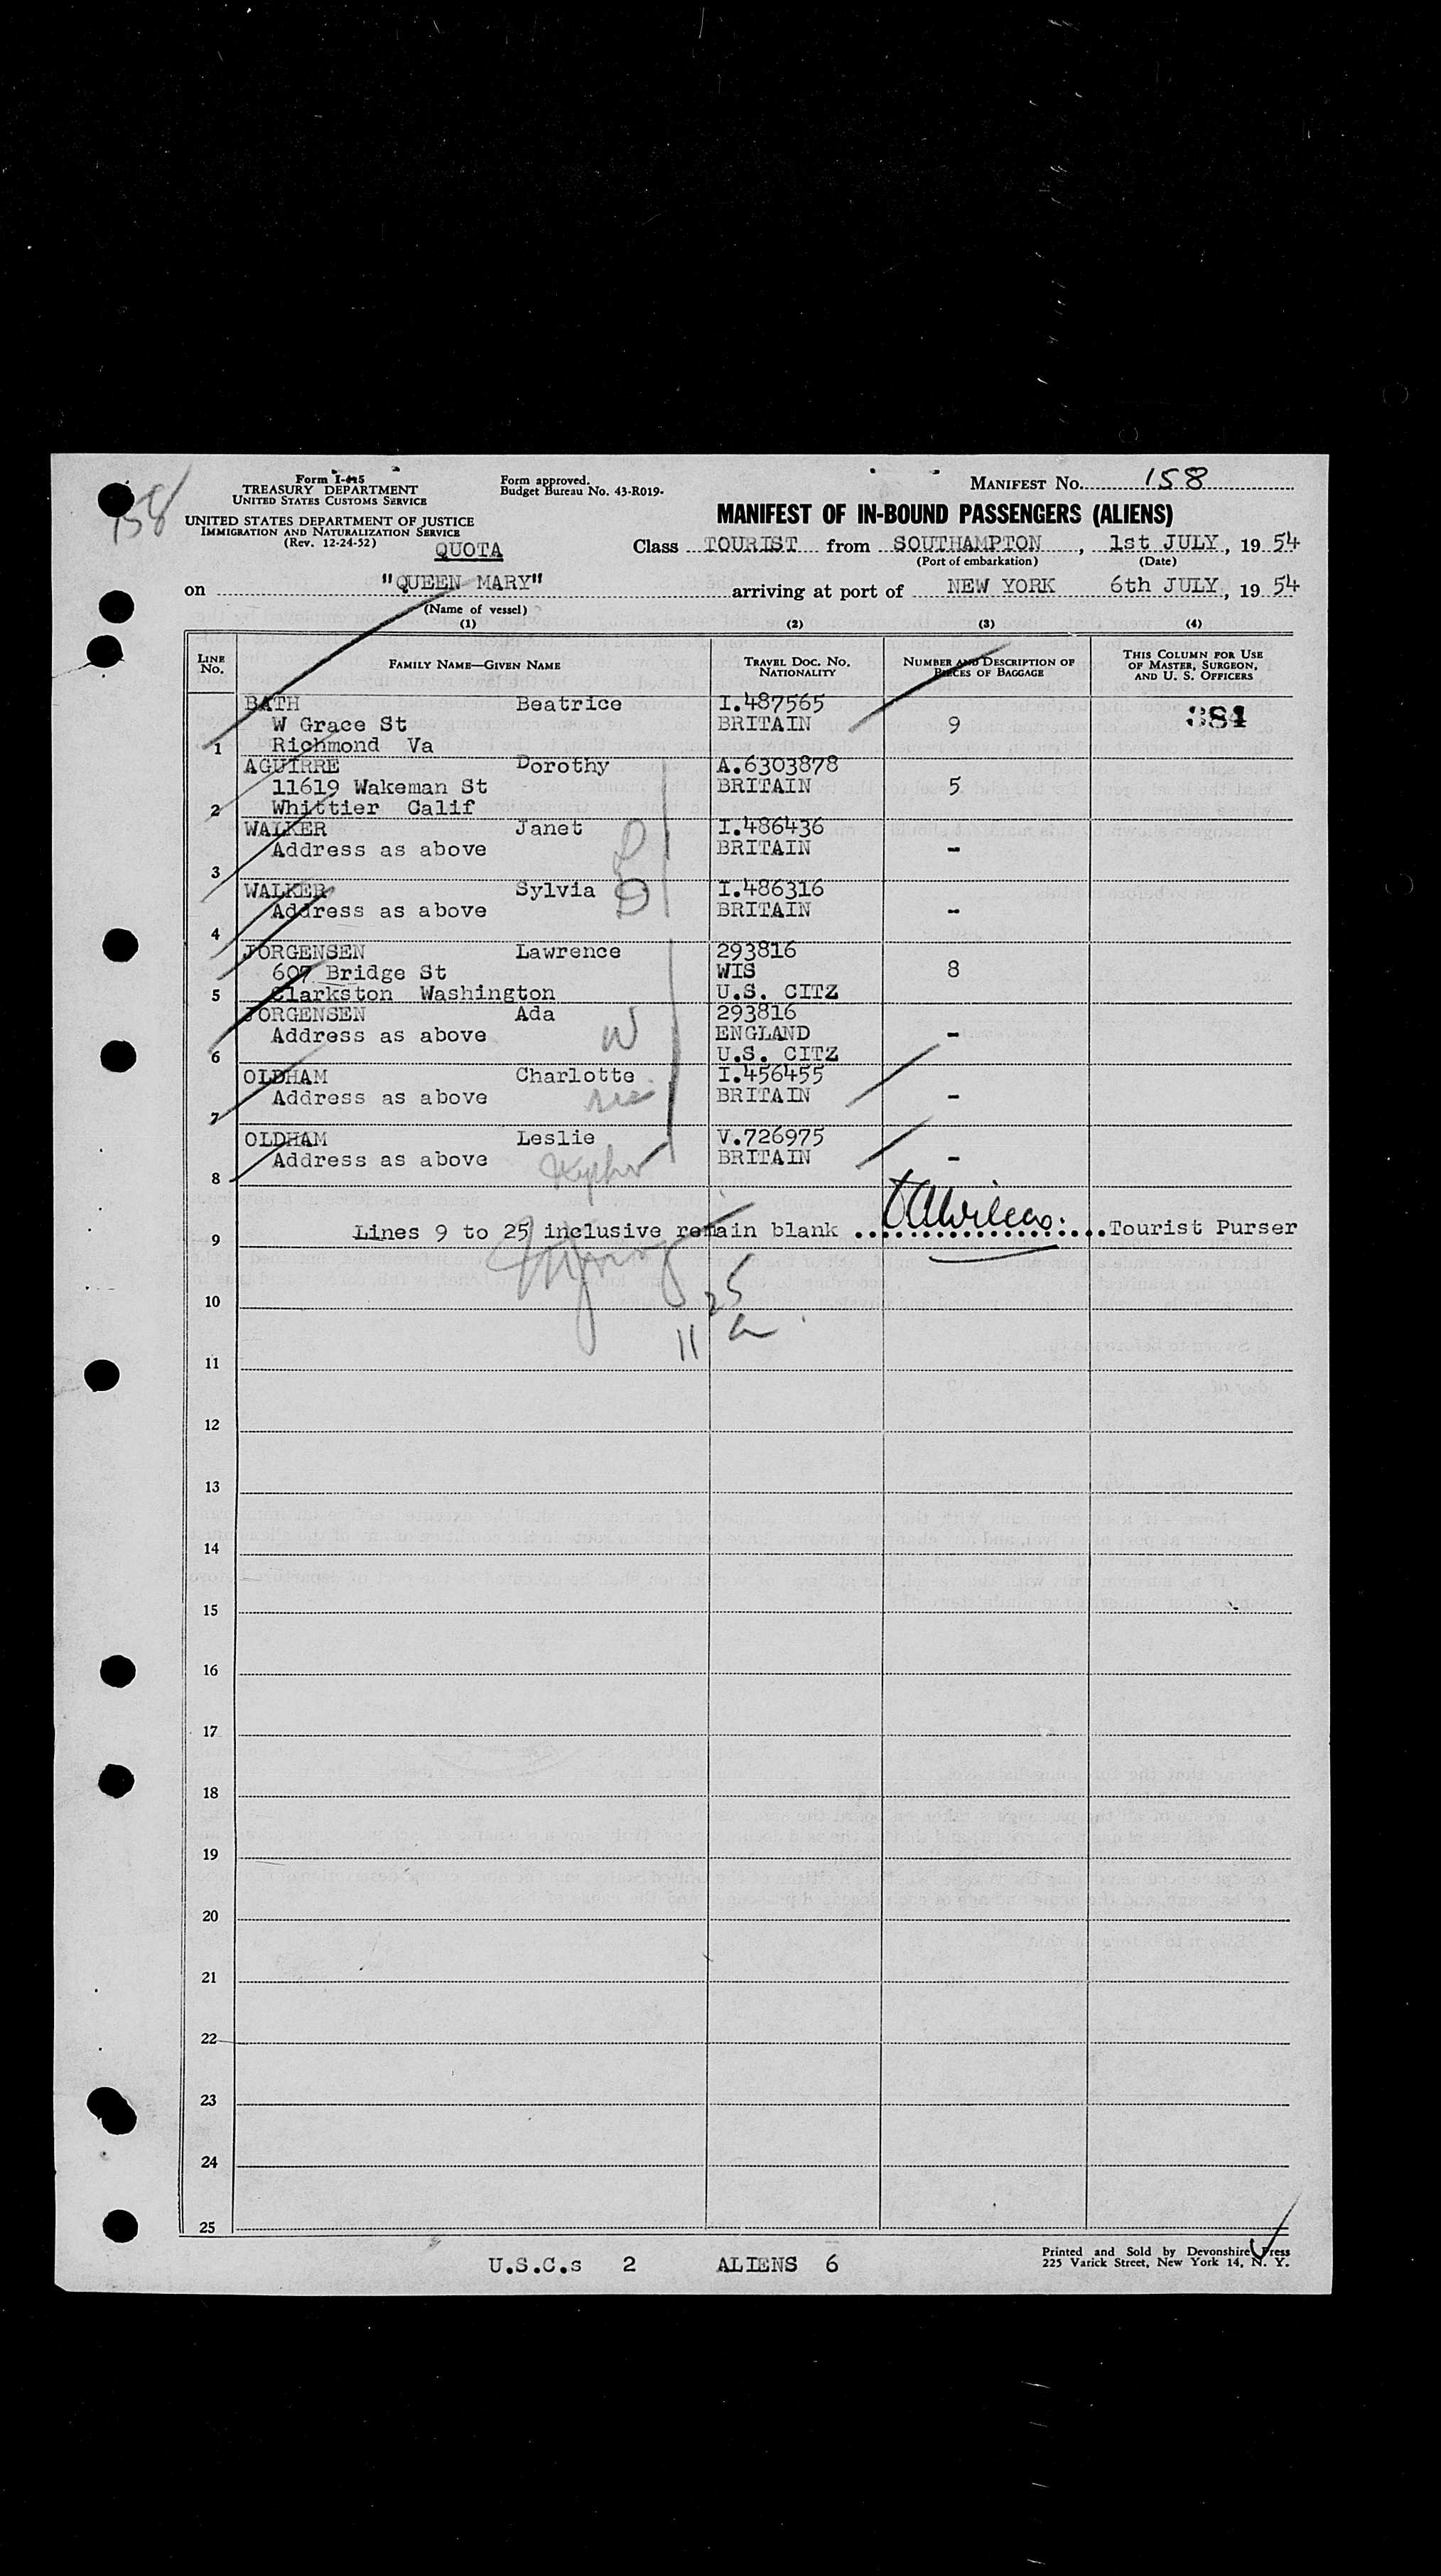 158
Form I-415
TREASURY DEPARTMENT
UNITED STATES CUSTOMS SERVICE
UNITED STATES DEPARTMENT OF JUSTICE
IMMIGRATION AND NATURALIZATION SERVICE
(Rev. 12-24-52)
Form approved.
Budget Bureau No. 43-R019-
MANIFEST No. 158
MANIFEST OF IN-BOUND PASSENGERS (ALIENS)
QUOTA
Class TOURIST from SOUTHAMPTON, 1st JULY, 19 54
(Port of embarkation) (Date)
on "QUEEN MARY" arriving at port of NEW YORK 6th JULY, 19 54
(Name of vessel)
(1) (2) (3) (4)
LINE No. FAMILY NAME—GIVEN NAME TRAVEL DOC. No. NATIONALITY NUMBER AND DESCRIPTION OF PIECES OF BAGGAGE THIS COLUMN FOR USE OF MASTER, SURGEON, AND U. S. OFFICERS
BATH Beatrice I.487565
W Grace St BRITAIN 9 384
1 Richmond Va
AGUIRRE Dorothy A.6303878
11619 Wakeman St BRITAIN 5
2 Whittier Calif
WALKER Janet I.486436
Address as above BRITAIN -
3
WALKER Sylvia I.486316
Address as above BRITAIN -
4
JORGENSEN Lawrence 293816
607 Bridge St WIS 8
5 Clarkston Washington U.S. CITZ
JORGENSEN Ada 293816
Address as above W ENGLAND -
6 U.S. CITZ
OLDHAM Charlotte I.456455
Address as above BRITAIN -
7
OLDHAM Leslie V.726975
Address as above BRITAIN -
8
9 Lines 9 to 25 inclusive remain blank Tourist Purser
10
11
12
13
14
15
16
17
18
19
20
21
22
23
24
25
U.S.C.s 2 ALIENS 6
Printed and Sold by Devonshire Press
225 Varick Street, New York 14, N. Y.